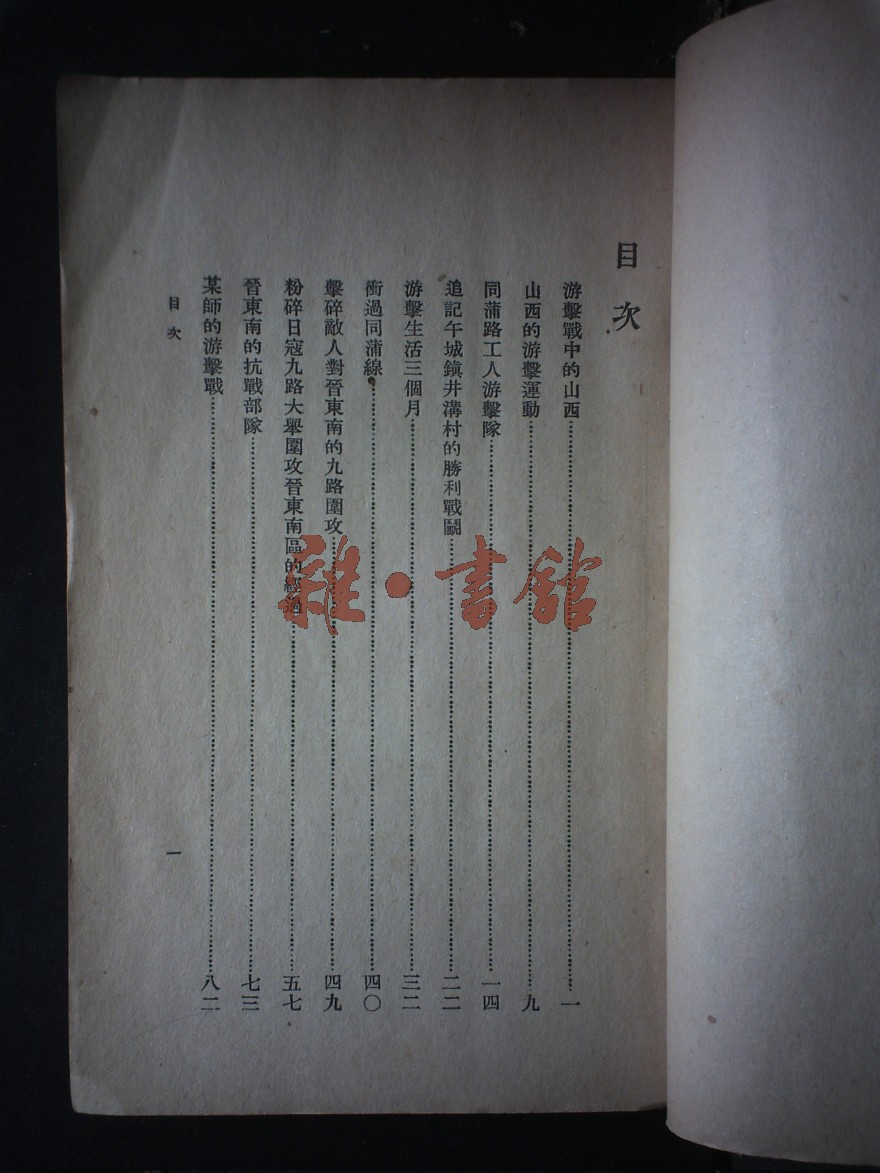 目次
游擊戰中的山西……一
山西的游擊運動……九
同蒲路工人游擊隊……一四
追記午城鎮井溝村的勝利戰鬬……二二
游擊生活三個月……三二
衝過同蒲線……四〇
擊碎敵人對晉東南的九路圍攻……四九
粉碎日寇九路大舉圍攻晉東南區的經過……五七
晉東南的抗戰部隊……七三
某師的游擊戰……八二
目次 一
雜·書館